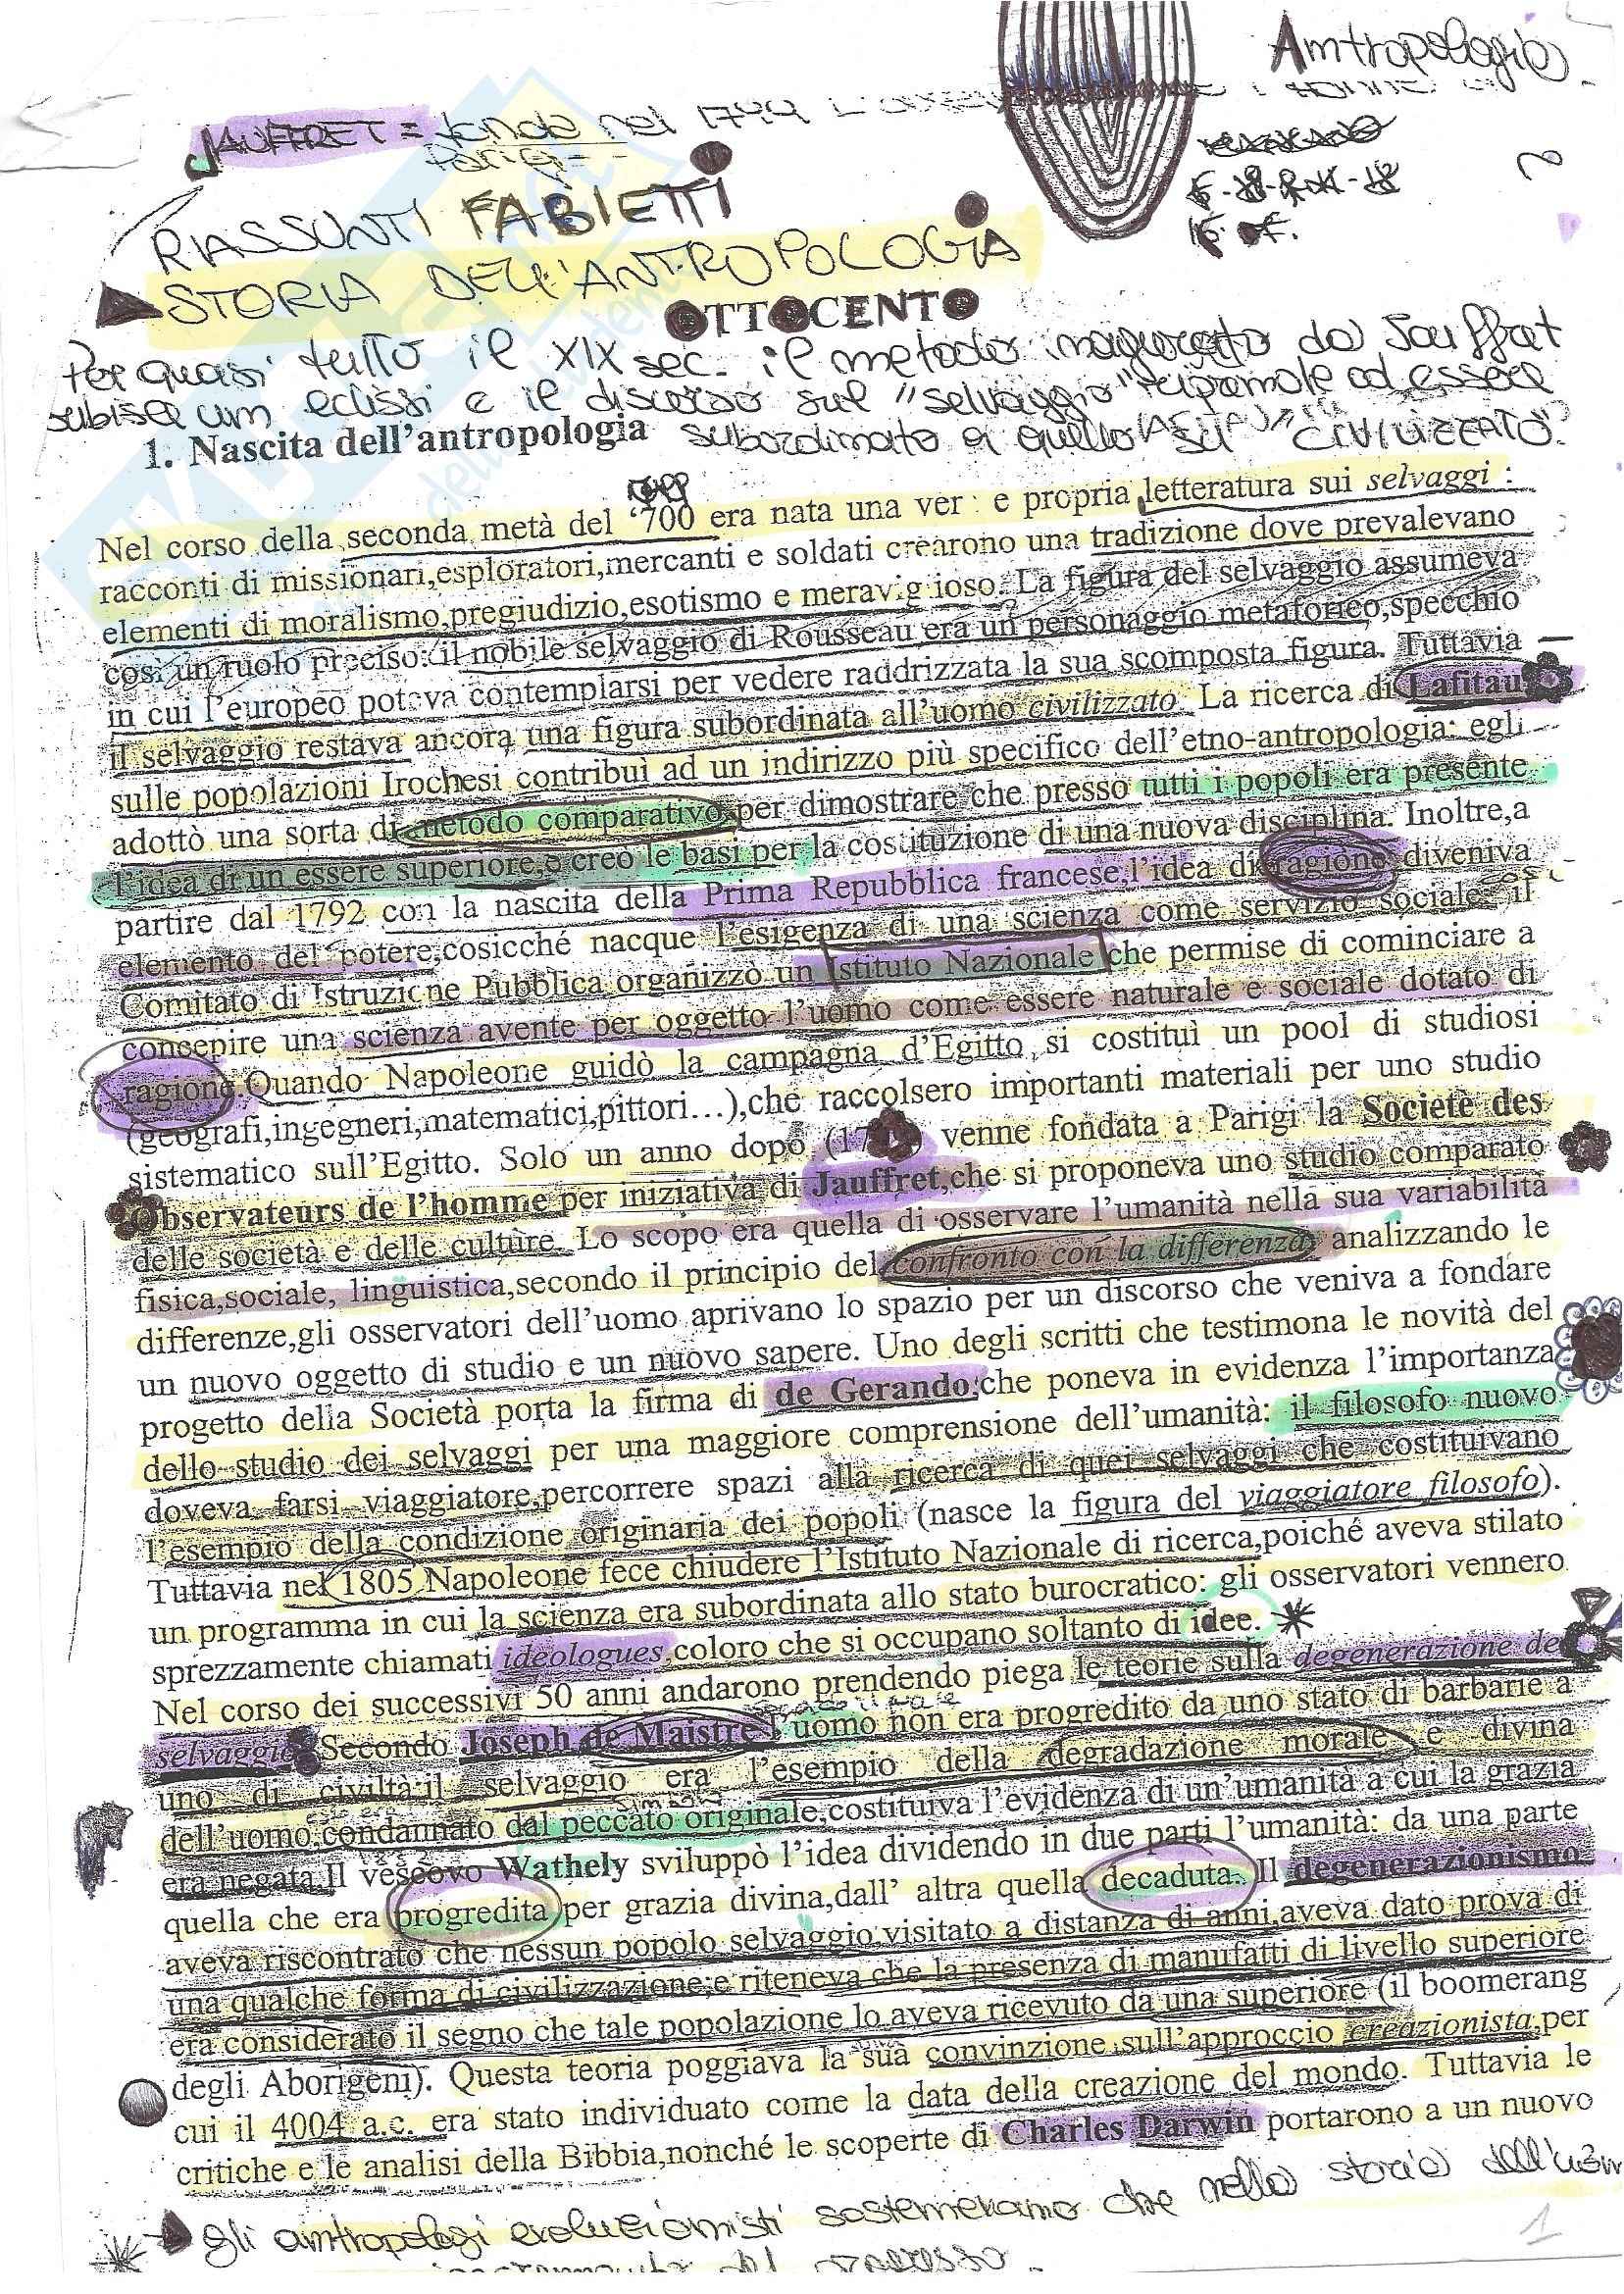 Antropologia
JAUFFRET = fonda nel 1799
Parigi
RIASSUNTI FABIETTI
STORIA DELL'ANTROPOLOGIA
OTTOCENTO
Per quasi tutto il XIX sec. il metodo inaugurato da Jauffret
subisce un eclissi e il discorso sul "selvaggio" ad essere
subordinato a quello su "CIVILIZZATO".
1. Nascita dell'antropologia
Nel corso della seconda metà del '700 era nata una ver e propria letteratura sui selvaggi :
racconti di missionari,esploratori,mercanti e soldati crearono una tradizione dove prevalevano
elementi di moralismo,pregiudizio,esotismo e meraviglioso. La figura del selvaggio assumeva
così un ruolo preciso:il nobile selvaggio di Rousseau era un personaggio metaforico,specchio
in cui l'europeo poteva contemplarsi per vedere raddrizzata la sua scomposta figura. Tuttavia
il selvaggio restava ancora una figura subordinata all'uomo civilizzato. La ricerca di Lafitau
sulle popolazioni Irochesi contribuì ad un indirizzo più specifico dell'etno-antropologia: egli
adottò una sorta di metodo comparativo per dimostrare che presso tutti i popoli era presente
l'idea di un essere superiore,e creò le basi per la costituzione di una nuova disciplina. Inoltre,a
partire dal 1792 con la nascita della Prima Repubblica francese,l'idea di ragione diveniva
elemento del potere,cosicché nacque l'esigenza di una scienza come servizio sociale: il
Comitato di Istruzione Pubblica organizzò un Istituto Nazionale che permise di cominciare a
concepire una scienza avente per oggetto l'uomo come essere naturale e sociale dotato di
ragione.Quando Napoleone guidò la campagna d'Egitto si costituì un pool di studiosi
(geografi,ingegneri,matematici,pittori…),che raccolsero importanti materiali per uno studio
sistematico sull'Egitto. Solo un anno dopo (17 venne fondata a Parigi la Societè des
Observateurs de l'homme per iniziativa di Jauffret,che si proponeva uno studio comparato
delle società e delle culture. Lo scopo era quella di osservare l'umanità nella sua variabilità
fisica,sociale, linguistica,secondo il principio del confronto con la differenza: analizzando le
differenze,gli osservatori dell'uomo aprivano lo spazio per un discorso che veniva a fondare
un nuovo oggetto di studio e un nuovo sapere. Uno degli scritti che testimona le novità del
progetto della Società porta la firma di de Gerando,che poneva in evidenza l'importanza
dello studio dei selvaggi per una maggiore comprensione dell'umanità: il filosofo nuovo
doveva farsi viaggiatore,percorrere spazi alla ricerca di quei selvaggi che costituivano
l'esempio della condizione originaria dei popoli (nasce la figura del viaggiatore filosofo).
Tuttavia nel 1805 Napoleone fece chiudere l'Istituto Nazionale di ricerca,poiché aveva stilato
un programma in cui la scienza era subordinata allo stato burocratico: gli osservatori vennero
sprezzamente chiamati ideologues,coloro che si occupano soltanto di idee.
Nel corso dei successivi 50 anni andarono prendendo piega le teorie sulla degenerazione de
selvaggio. Secondo Joseph de Maistre l'uomo non era progredito da uno stato di barbarie a
uno di civiltà:il selvaggio era l'esempio della degradazione morale e divina
dell'uomo,condannato dal peccato originale,costituiva l'evidenza di un'umanità a cui la grazia
era negata.Il vescovo Wathely sviluppò l'idea dividendo in due parti l'umanità: da una parte
quella che era progredita per grazia divina,dall' altra quella decaduta. Il degenerazionismo
aveva riscontrato che nessun popolo selvaggio,visitato a distanza di anni,aveva dato prova di
una qualche forma di civilizzazione;e riteneva che la presenza di manufatti di livello superiore
era considerato il segno che tale popolazione lo aveva ricevuto da una superiore (il boomerang
degli Aborigeni). Questa teoria poggiava la sua convinzione sull'approccio creazionista,per
cui il 4004 a.c. era stato individuato come la data della creazione del mondo. Tuttavia le
critiche e le analisi della Bibbia,nonché le scoperte di Charles Darwin portarono a un nuovo
gli antropologi evoluzionisti sostenevano che nella storia dell'uom
1